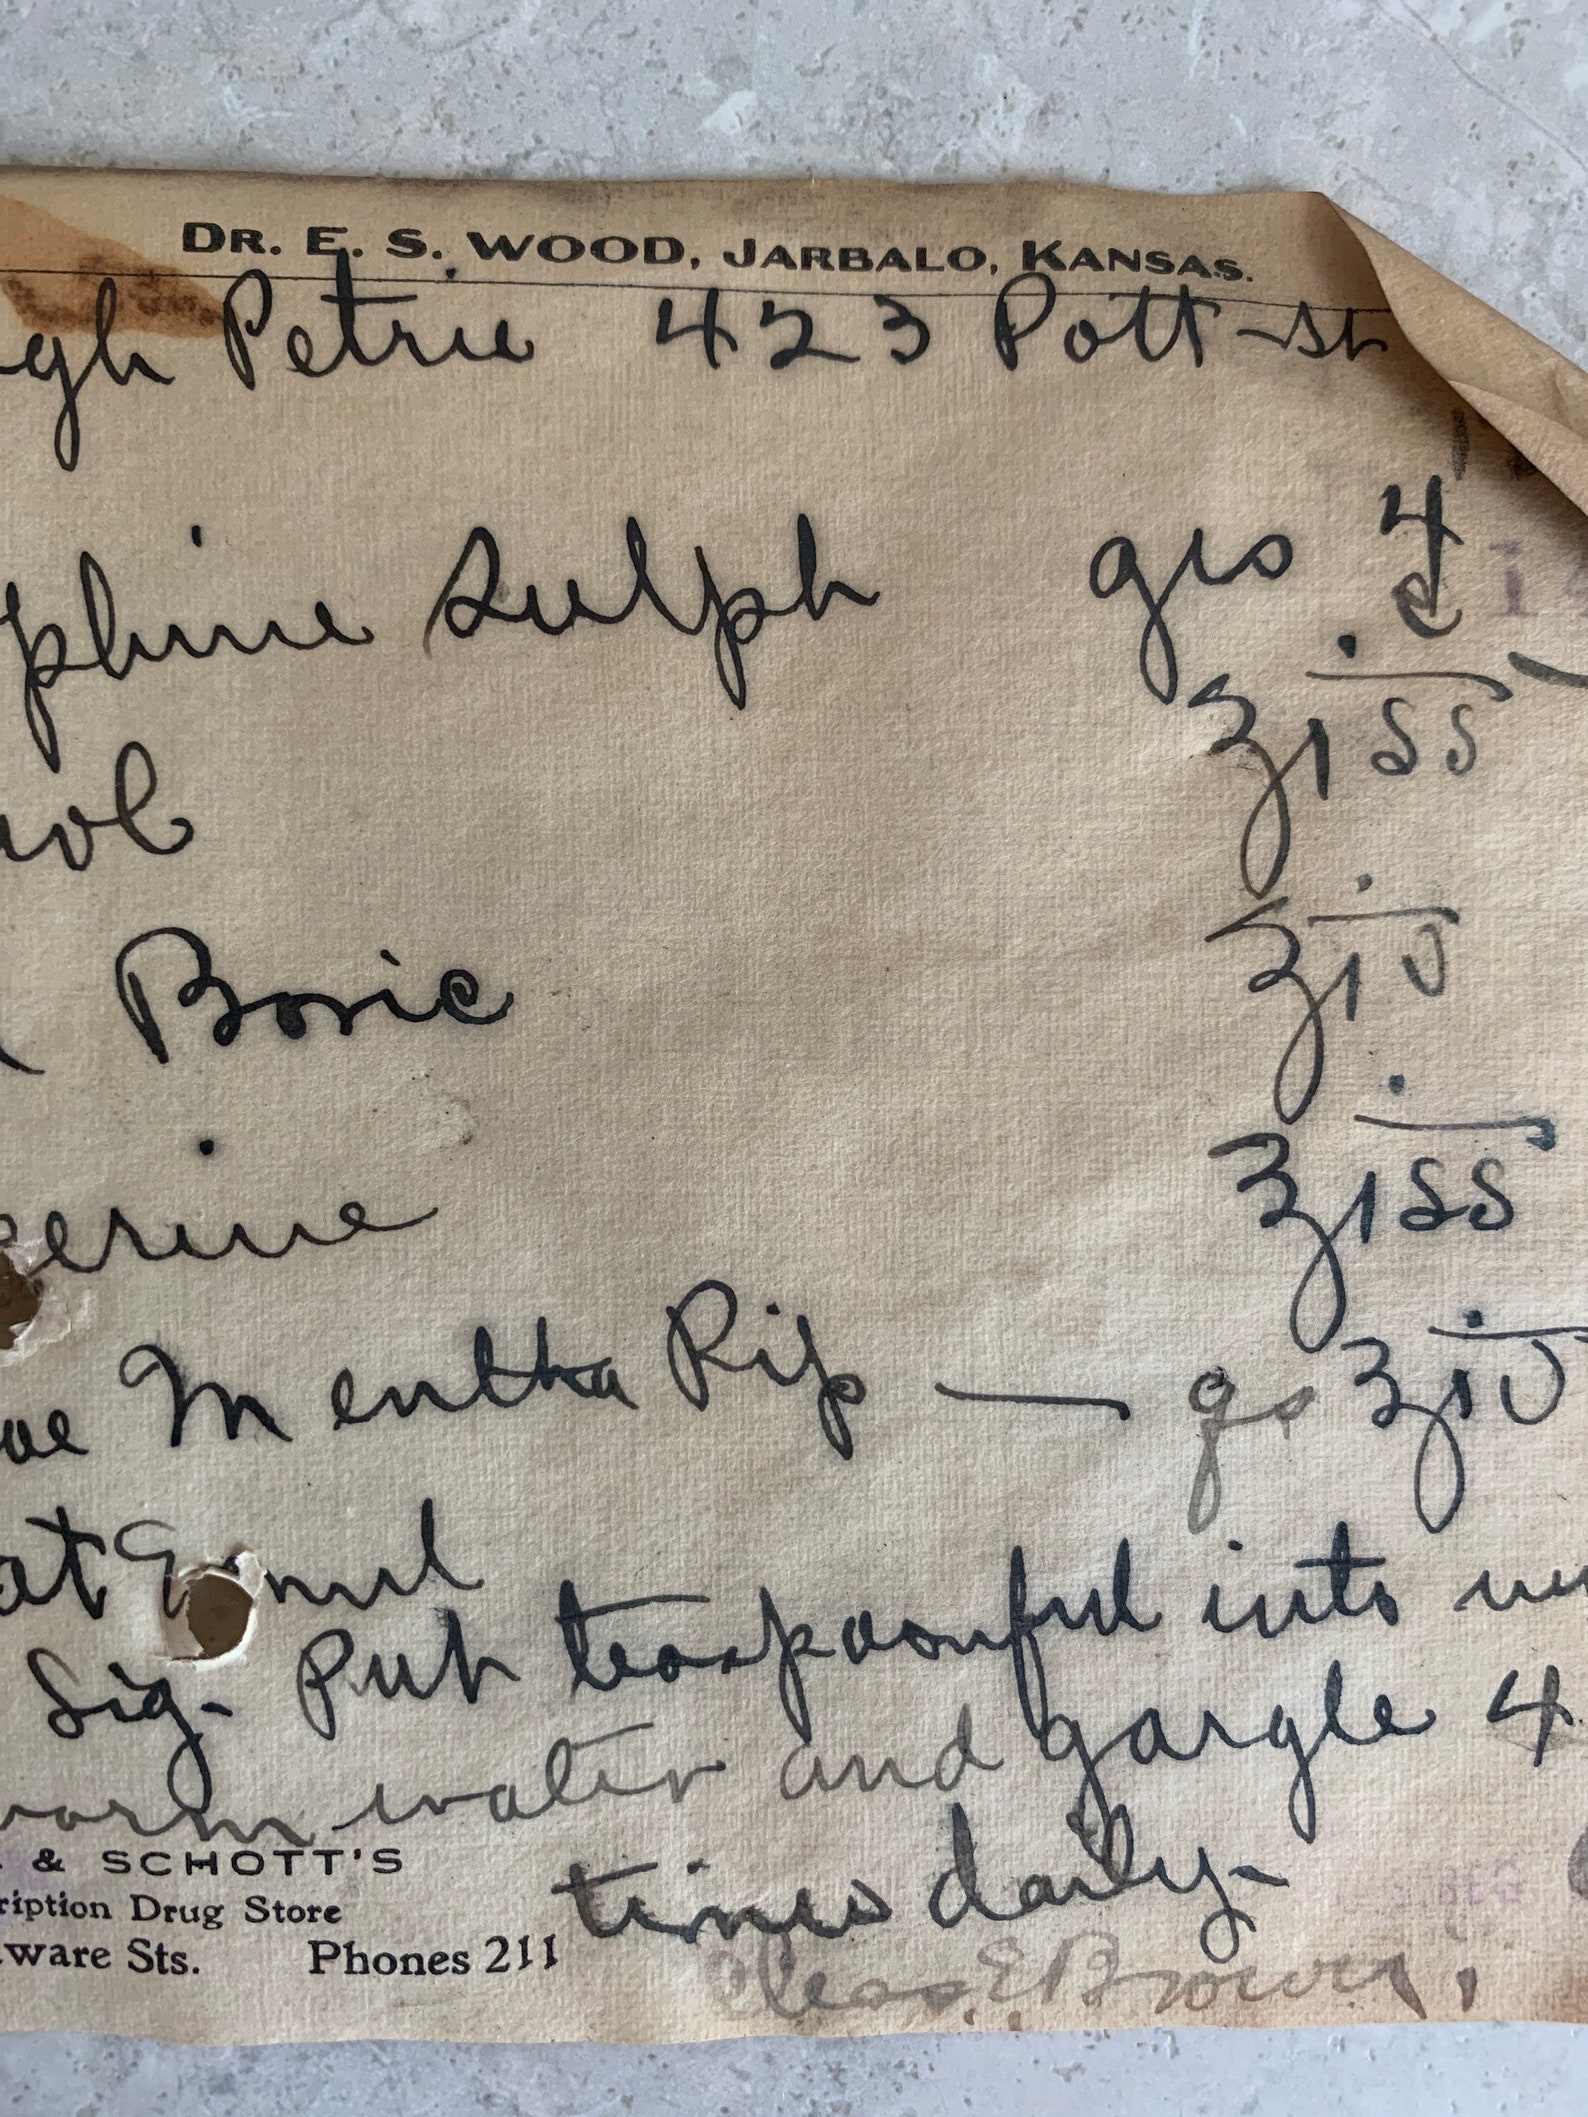 DR. E. S. WOOD, JARBALO, KANSAS.
gh Petrie 423 Pott st
phine Sulph grs 4
ol ʒiss
Boric ʒiv
erine ʒiss
ae Mentha Pip — qs ʒiv
at Emul
Sig. Put teaspoonful into
warm water and gargle 4
times daily.
& SCHOTT'S
ription Drug Store
ware Sts. Phones 211
E Brown